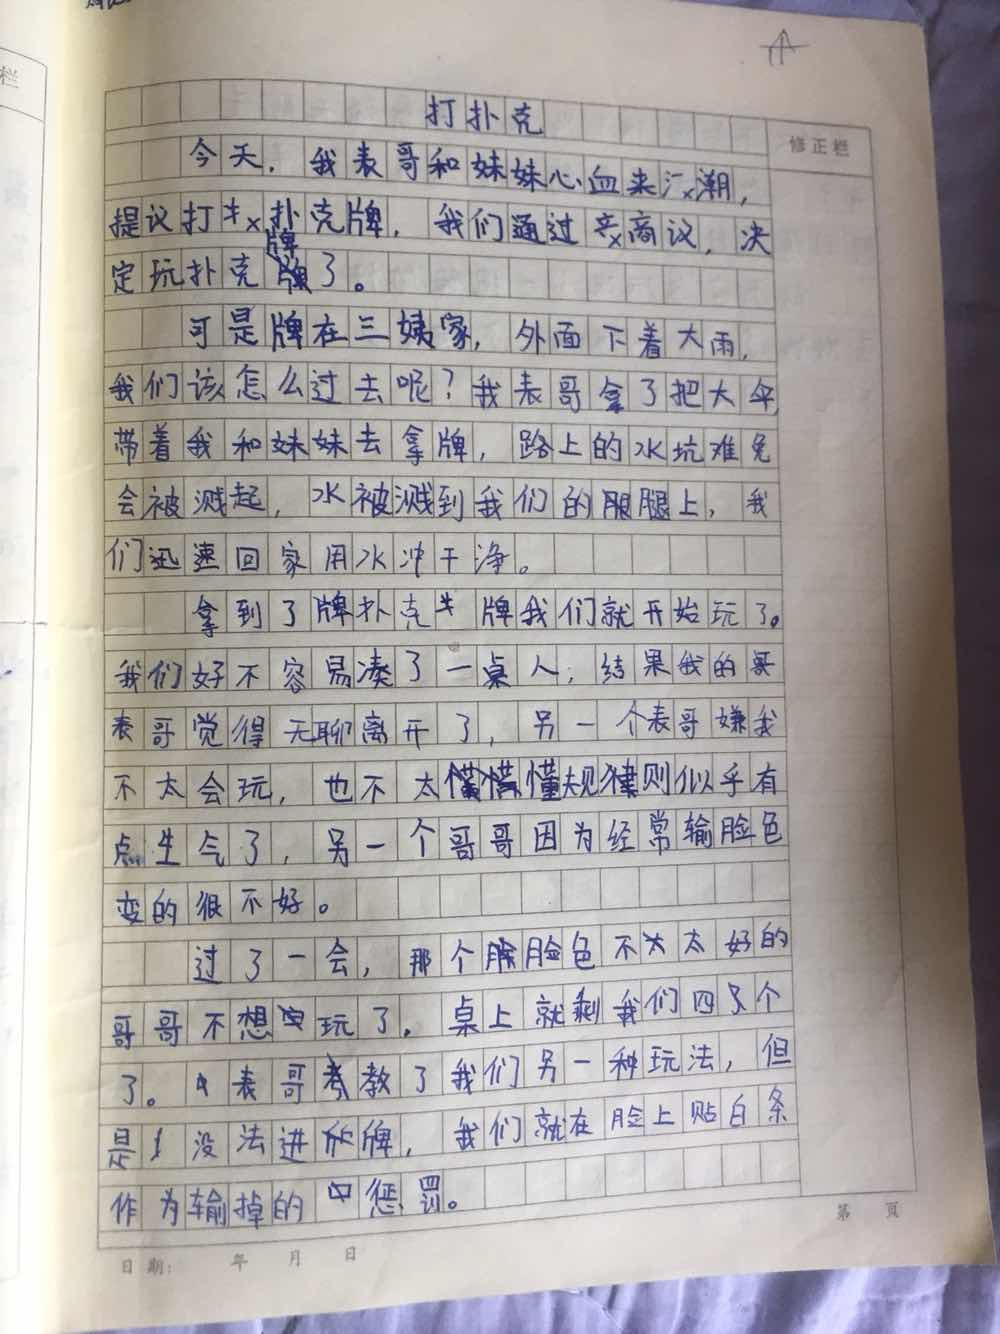 打扑克
修正栏
今天，我表哥和妹妹心血来潮，
提议打扑克牌，我们通过商议，决
定玩扑克牌了。
可是牌在三姨家，外面下着大雨，
我们该怎么过去呢？我表哥拿了把大伞
带着我和妹妹去拿牌，路上的水坑难免
会被溅起，水被溅到我们的腿上，我
们迅速回家用水冲干净。
拿到了牌扑克牌我们就开始玩了。
我们好不容易凑了一桌人，结果我的哥
表哥觉得无聊离开了，另一个表哥嫌我
不太会玩，也不太懂规则似乎有
点生气了，另一个哥哥因为经常输脸色
变的很不好。
过了一会，那个脸色不太好的
哥哥不想玩了。桌上就剩我们四个
了。表哥教了我们另一种玩法，但
是没法进牌，我们就在脸上贴白条
作为输掉的惩罚。
第 页
日期： 年 月 日
栏